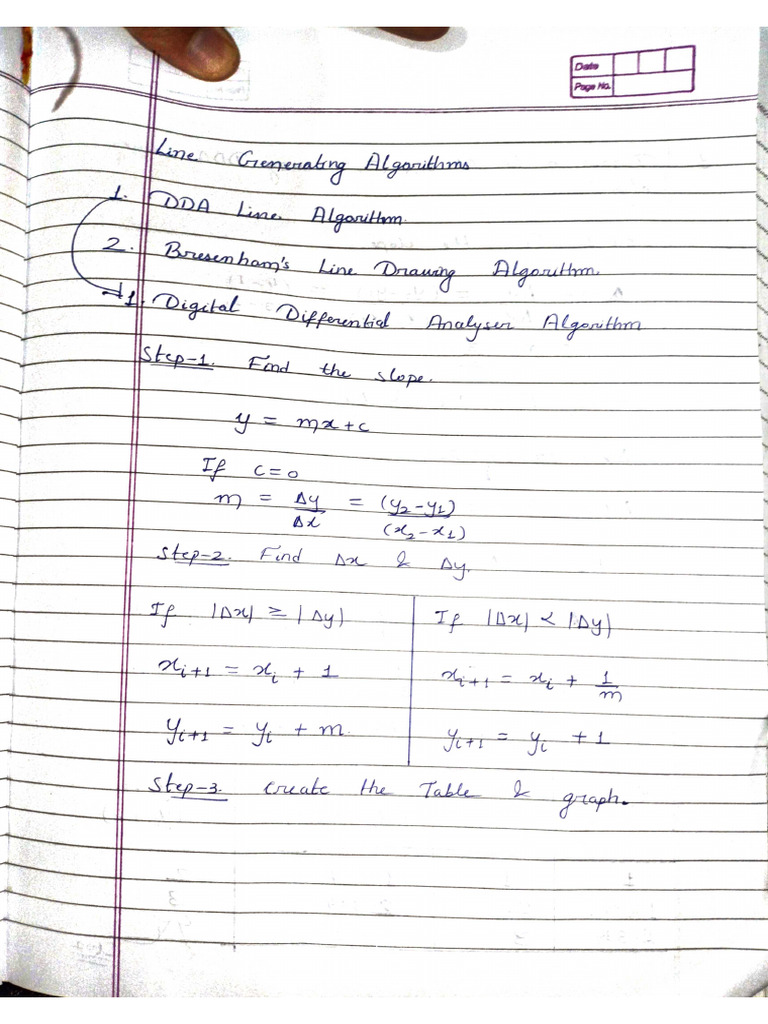 Date
Page No.
Line Generating Algorithms
1. DDA Line Algorithm.
2. Bresenham's Line Drawing Algorithm.
1. Digital Differential Analyser Algorithm
Step-1. Find the slope.
y = mx + c
If c = 0
m = Δy/Δx = (y₂-y₁)/(x₂-x₁)
Step-2. Find Δx & Δy.
If |Δx| ≥ |Δy|
xᵢ₊₁ = xᵢ + 1
yᵢ₊₁ = yᵢ + m.
If |Δx| < |Δy|
xᵢ₊₁ = xᵢ + 1/m
yᵢ₊₁ = yᵢ + 1
Step-3. Create the Table & graph.